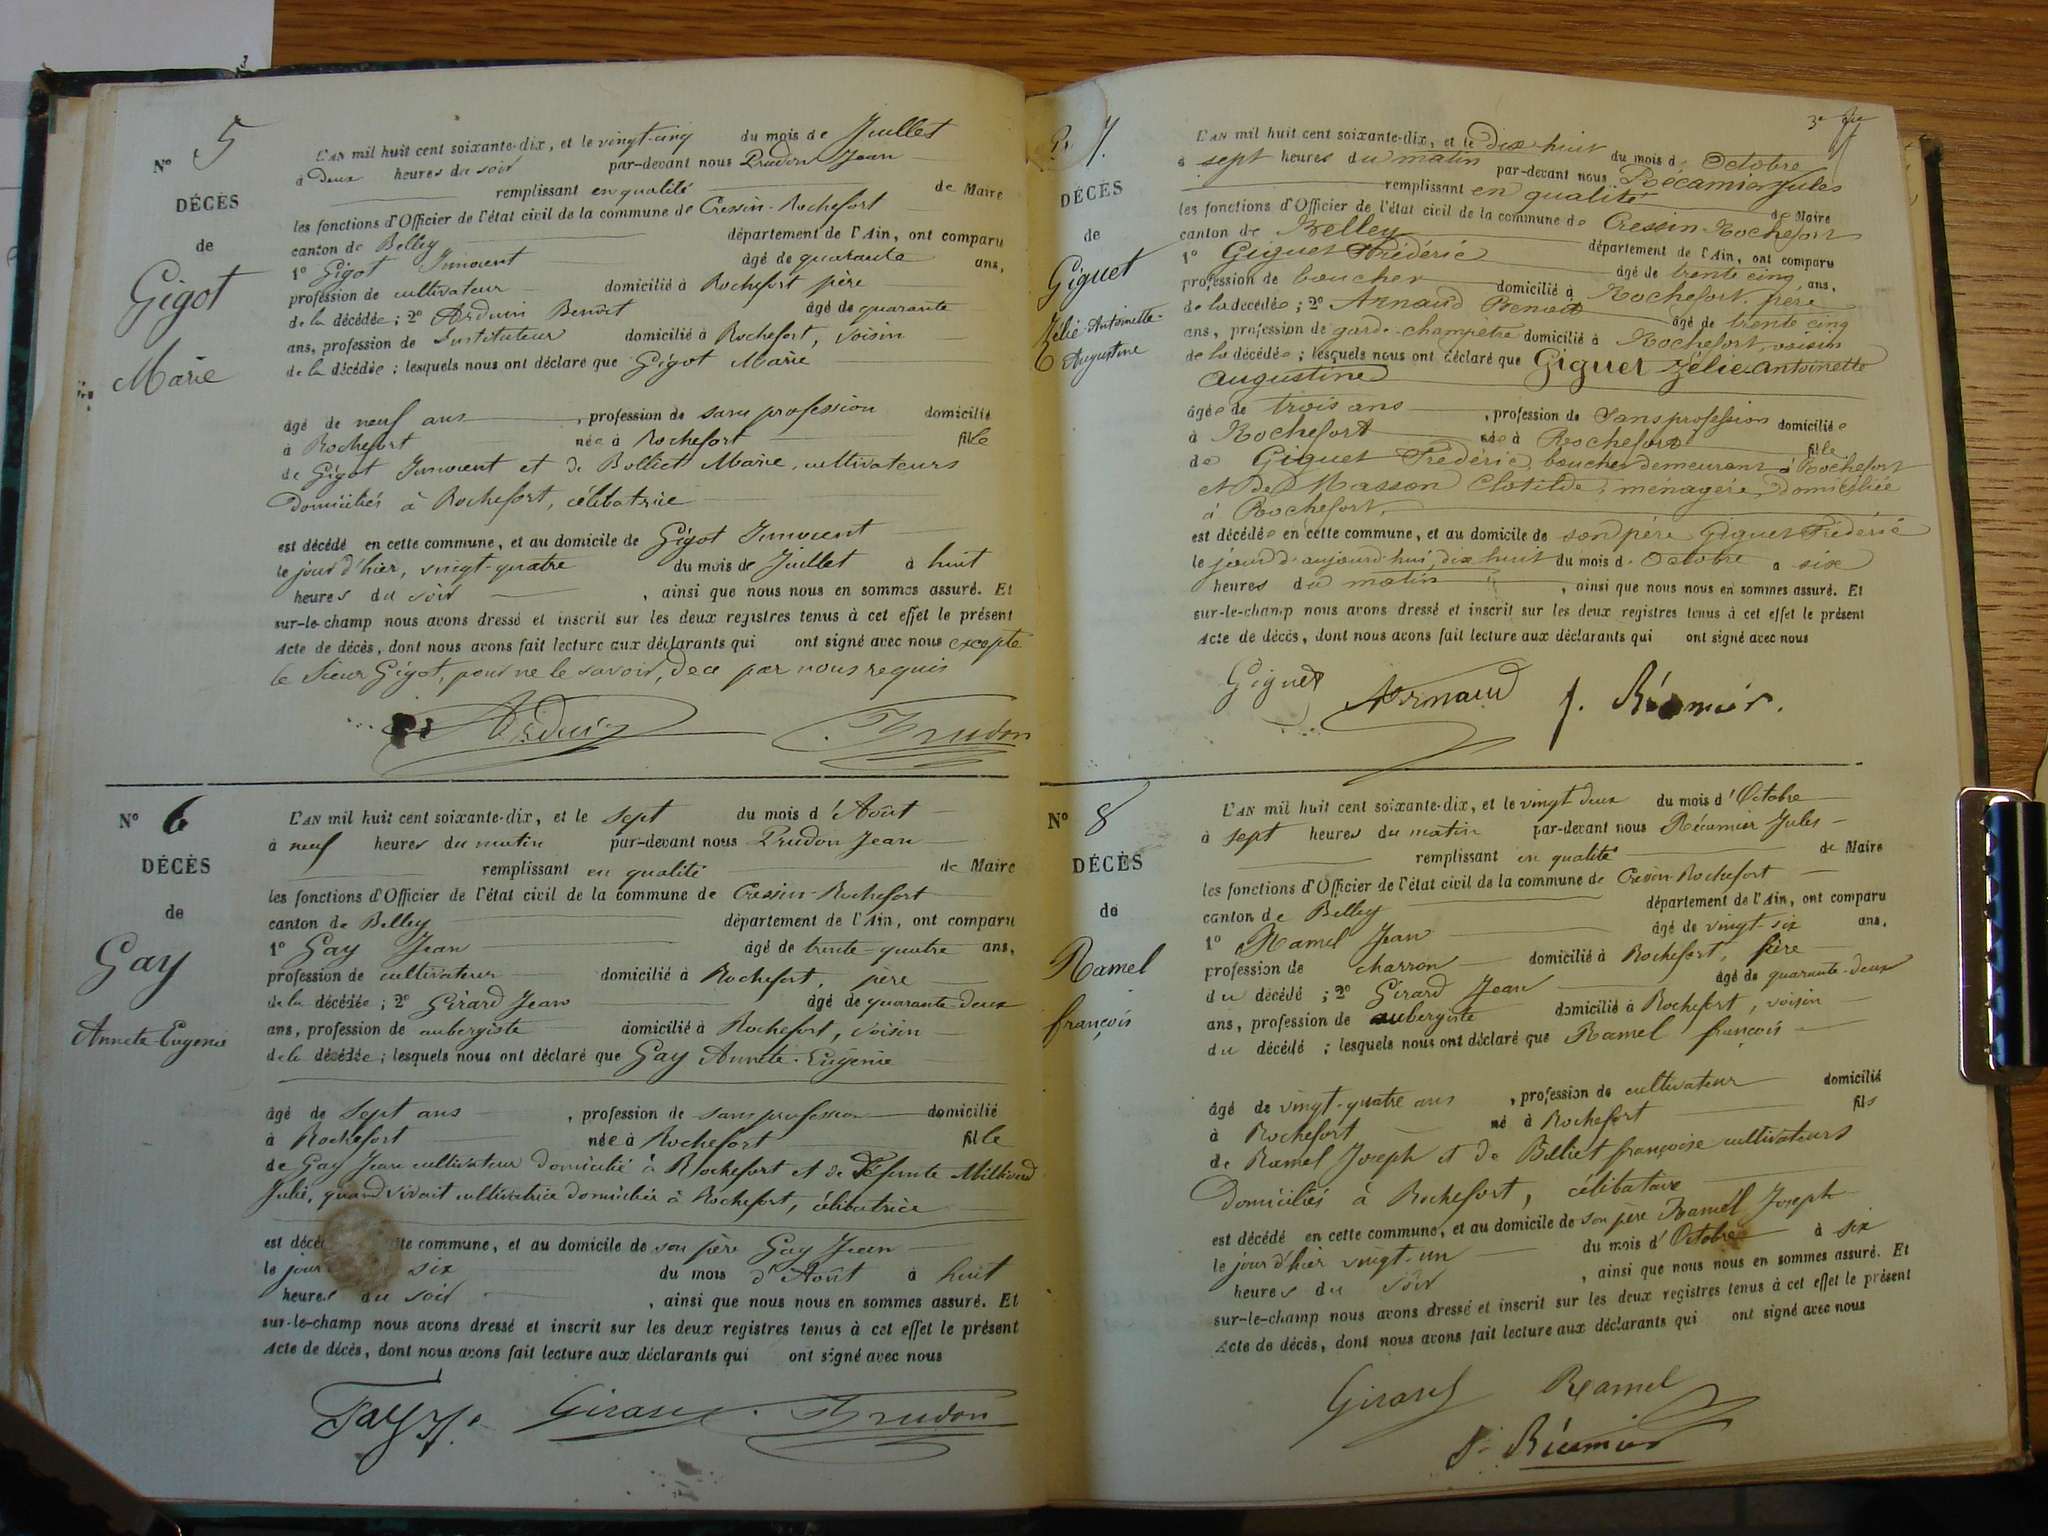 N° 5
DÉCÈS
de
Gigot
Marie
L'AN mil huit cent soixante-dix, et le vingt-cinq du mois de Juillet
à deux heures du soir par-devant nous Prudon Jean
remplissant en qualité de Maire
les fonctions d'Officier de l'état civil de la commune de Cressin-Rochefort
canton de Belley département de l'Ain, ont comparu
1° Gigot Innocent âgé de quarante ans,
profession de cultivateur domicilié à Rochefort père
de la décédée ; 2° Arduin Benoît âgé de quarante
ans, profession de Instituteur domicilié à Rochefort, voisin
de la décédée ; lesquels nous ont déclaré que Gigot Marie
âgé de neuf ans , profession de sans profession domicilié
à Rochefort née à Rochefort fille
de Gigot Innocent et de Bolliet Marie, cultivateurs
domiciliés à Rochefort, célibatrice
est décédé en cette commune, et au domicile de Gigot Innocent
le jour d'hier, vingt-quatre du mois de Juillet à huit
heures du soir , ainsi que nous nous en sommes assuré. Et
sur-le-champ nous avons dressé et inscrit sur les deux registres tenus à cet effet le présent
Acte de décès, dont nous avons fait lecture aux déclarants qui ont signé avec nous excepté
le Sieur Gigot, pour ne le savoir, de ce par nous requis
Arduin Prudon
N° 6
DÉCÈS
de
Gay
Annete Eugenie
L'AN mil huit cent soixante-dix, et le sept du mois d'Août
à neuf heures du matin par-devant nous Prudon Jean
remplissant en qualité de Maire
les fonctions d'Officier de l'état civil de la commune de Cressin-Rochefort
canton de Belley département de l'Ain, ont comparu
1° Gay Jean âgé de trente-quatre ans,
profession de cultivateur domicilié à Rochefort, père
de la décédée ; 2° Girard Jean âgé de quarante deux
ans, profession de aubergiste domicilié à Rochefort, voisin
de la décédée ; lesquels nous ont déclaré que Gay Annete-Eugénie
âgé de sept ans , profession de sans profession domicilié
à Rochefort née à Rochefort fille
de Gay Jean cultivateur domicilié à Rochefort et de Défunte
Julie, quand vivait cultivatrice domiciliée à Rochefort, célibatrice
est décé te commune, et au domicile de son père Gay Jean
le jour six du mois d'Août à huit
heures du soir , ainsi que nous nous en sommes assuré. Et
sur-le-champ nous avons dressé et inscrit sur les deux registres tenus à cet effet le présent
Acte de décès, dont nous avons fait lecture aux déclarants qui ont signé avec nous
Girard Prudon
7.
DÉCÈS
de
Giguet
Zélie-Antoinette-
Augustine
3e
L'AN mil huit cent soixante-dix, et le dix huit du mois d' Octobre
à sept heures du matin par-devant nous Récamier Jules
remplissant en qualité de Maire
les fonctions d'Officier de l'état civil de la commune de Cressin-Rochefort
canton de Belley département de l'Ain, ont comparu
1° Giguet Frédéric âgé de trente cinq ans,
profession de boucher domicilié à Rochefort, père
de la décédée ; 2° Arnaud Benoit âgé de trente cinq
ans, profession de garde-champetre domicilié à Rochefort, voisin
de la décédée ; lesquels nous ont déclaré que Giguet Zélie Antoinette
Augustine
âgée de trois ans , profession de Sans profession domiciliée
à Rochefort née à Rochefort fille
de Giguet Frédéric, boucher demeurant à Rochefort
et de Masson Clotilde, ménagère, domiciliée
à Rochefort,
est décédée en cette commune, et au domicile de son père Giguet Frédéric
le jour d'aujourd'hui, dix huit du mois d' Octobre à six
heures du matin , ainsi que nous nous en sommes assuré. Et
sur-le-champ nous avons dressé et inscrit sur les deux registres tenus à cet effet le présent
Acte de décès, dont nous avons fait lecture aux déclarants qui ont signé avec nous
Giguet Arnaud J. Récamier.
N° 8
DÉCÈS
de
Ramel
françois
L'AN mil huit cent soixante-dix, et le vingt deux du mois d'Octobre
à sept heures du matin par-devant nous Récamier Jules
remplissant en qualité de Maire
les fonctions d'Officier de l'état civil de la commune de Cressin-Rochefort
canton de Belley département de l'Ain, ont comparu
1° Ramel Jean âgé de vingt-six ans,
profession de charron domicilié à Rochefort, frère
du décédé ; 2° Girard Jean âgé de quarante-deux
ans, profession de aubergiste domicilié à Rochefort, voisin
du décédé ; lesquels nous ont déclaré que Ramel françois
âgé de vingt-quatre ans , profession de cultivateur domicilié
à Rochefort né à Rochefort fils
de Ramel Joseph et de Billiet françoise cultivateurs
domiciliés à Rochefort, célibataire
est décédé en cette commune, et au domicile de son père Ramel Joseph
le jour d'hier vingt-un du mois d'Octobre à six
heures du soir , ainsi que nous nous en sommes assuré. Et
sur-le-champ nous avons dressé et inscrit sur les deux registres tenus à cet effet le présent
Acte de décès, dont nous avons fait lecture aux déclarants qui ont signé avec nous
Girard Ramel
J. Récamier